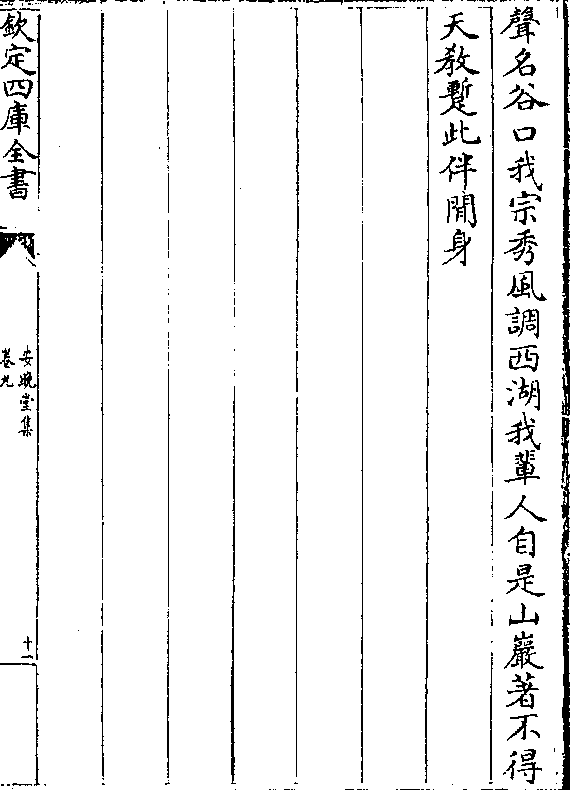 聲名谷口我宗秀風調西湖我輩人自是山巖著不得
天教蹔此伴閒身
欽定四庫全書
安晚堂集
卷九
十一